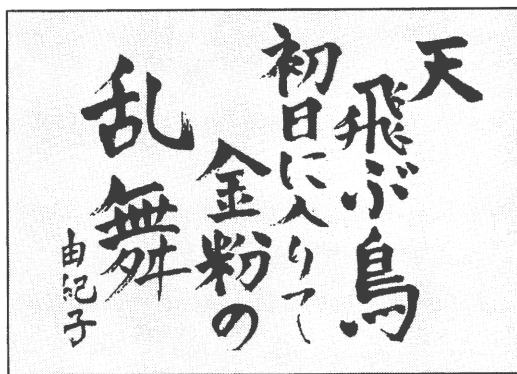 天
飛ぶ鳥
初日に入りて
金粉の
乱舞
由紀子